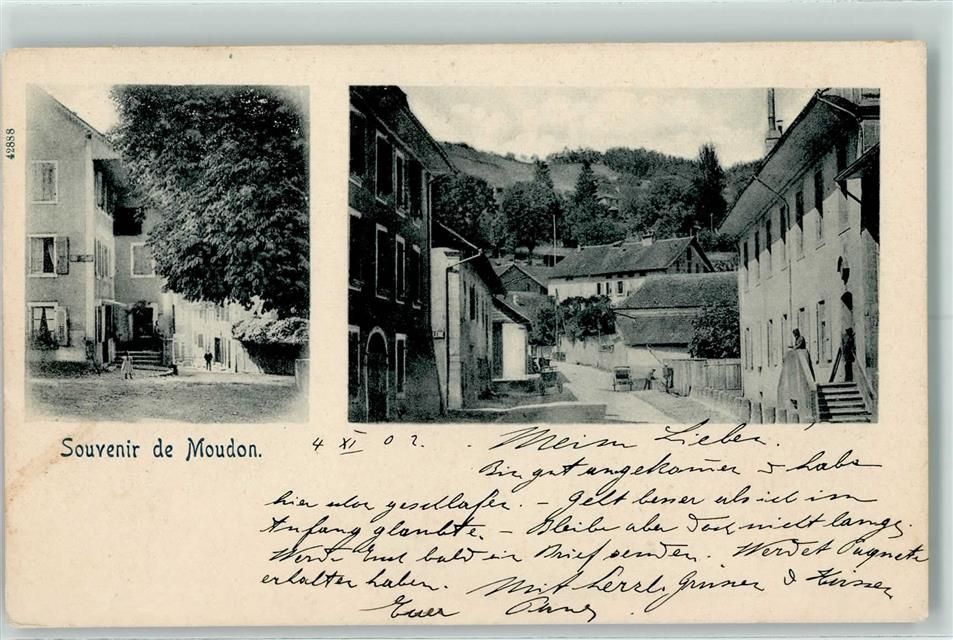 42888
Souvenir de Moudon.
4 XI 02. Mein Lieber!
Bin gut angekom̅en & habe
hier geschlafen. – Geht besser als ich im
Anfang glaubte. – Bleibe aber doch nicht lange.
Werde Euch bald ein Brief senden. Werdet Paquete
erhalten haben. Mit herzl. Grüssen & Küssen
Euer